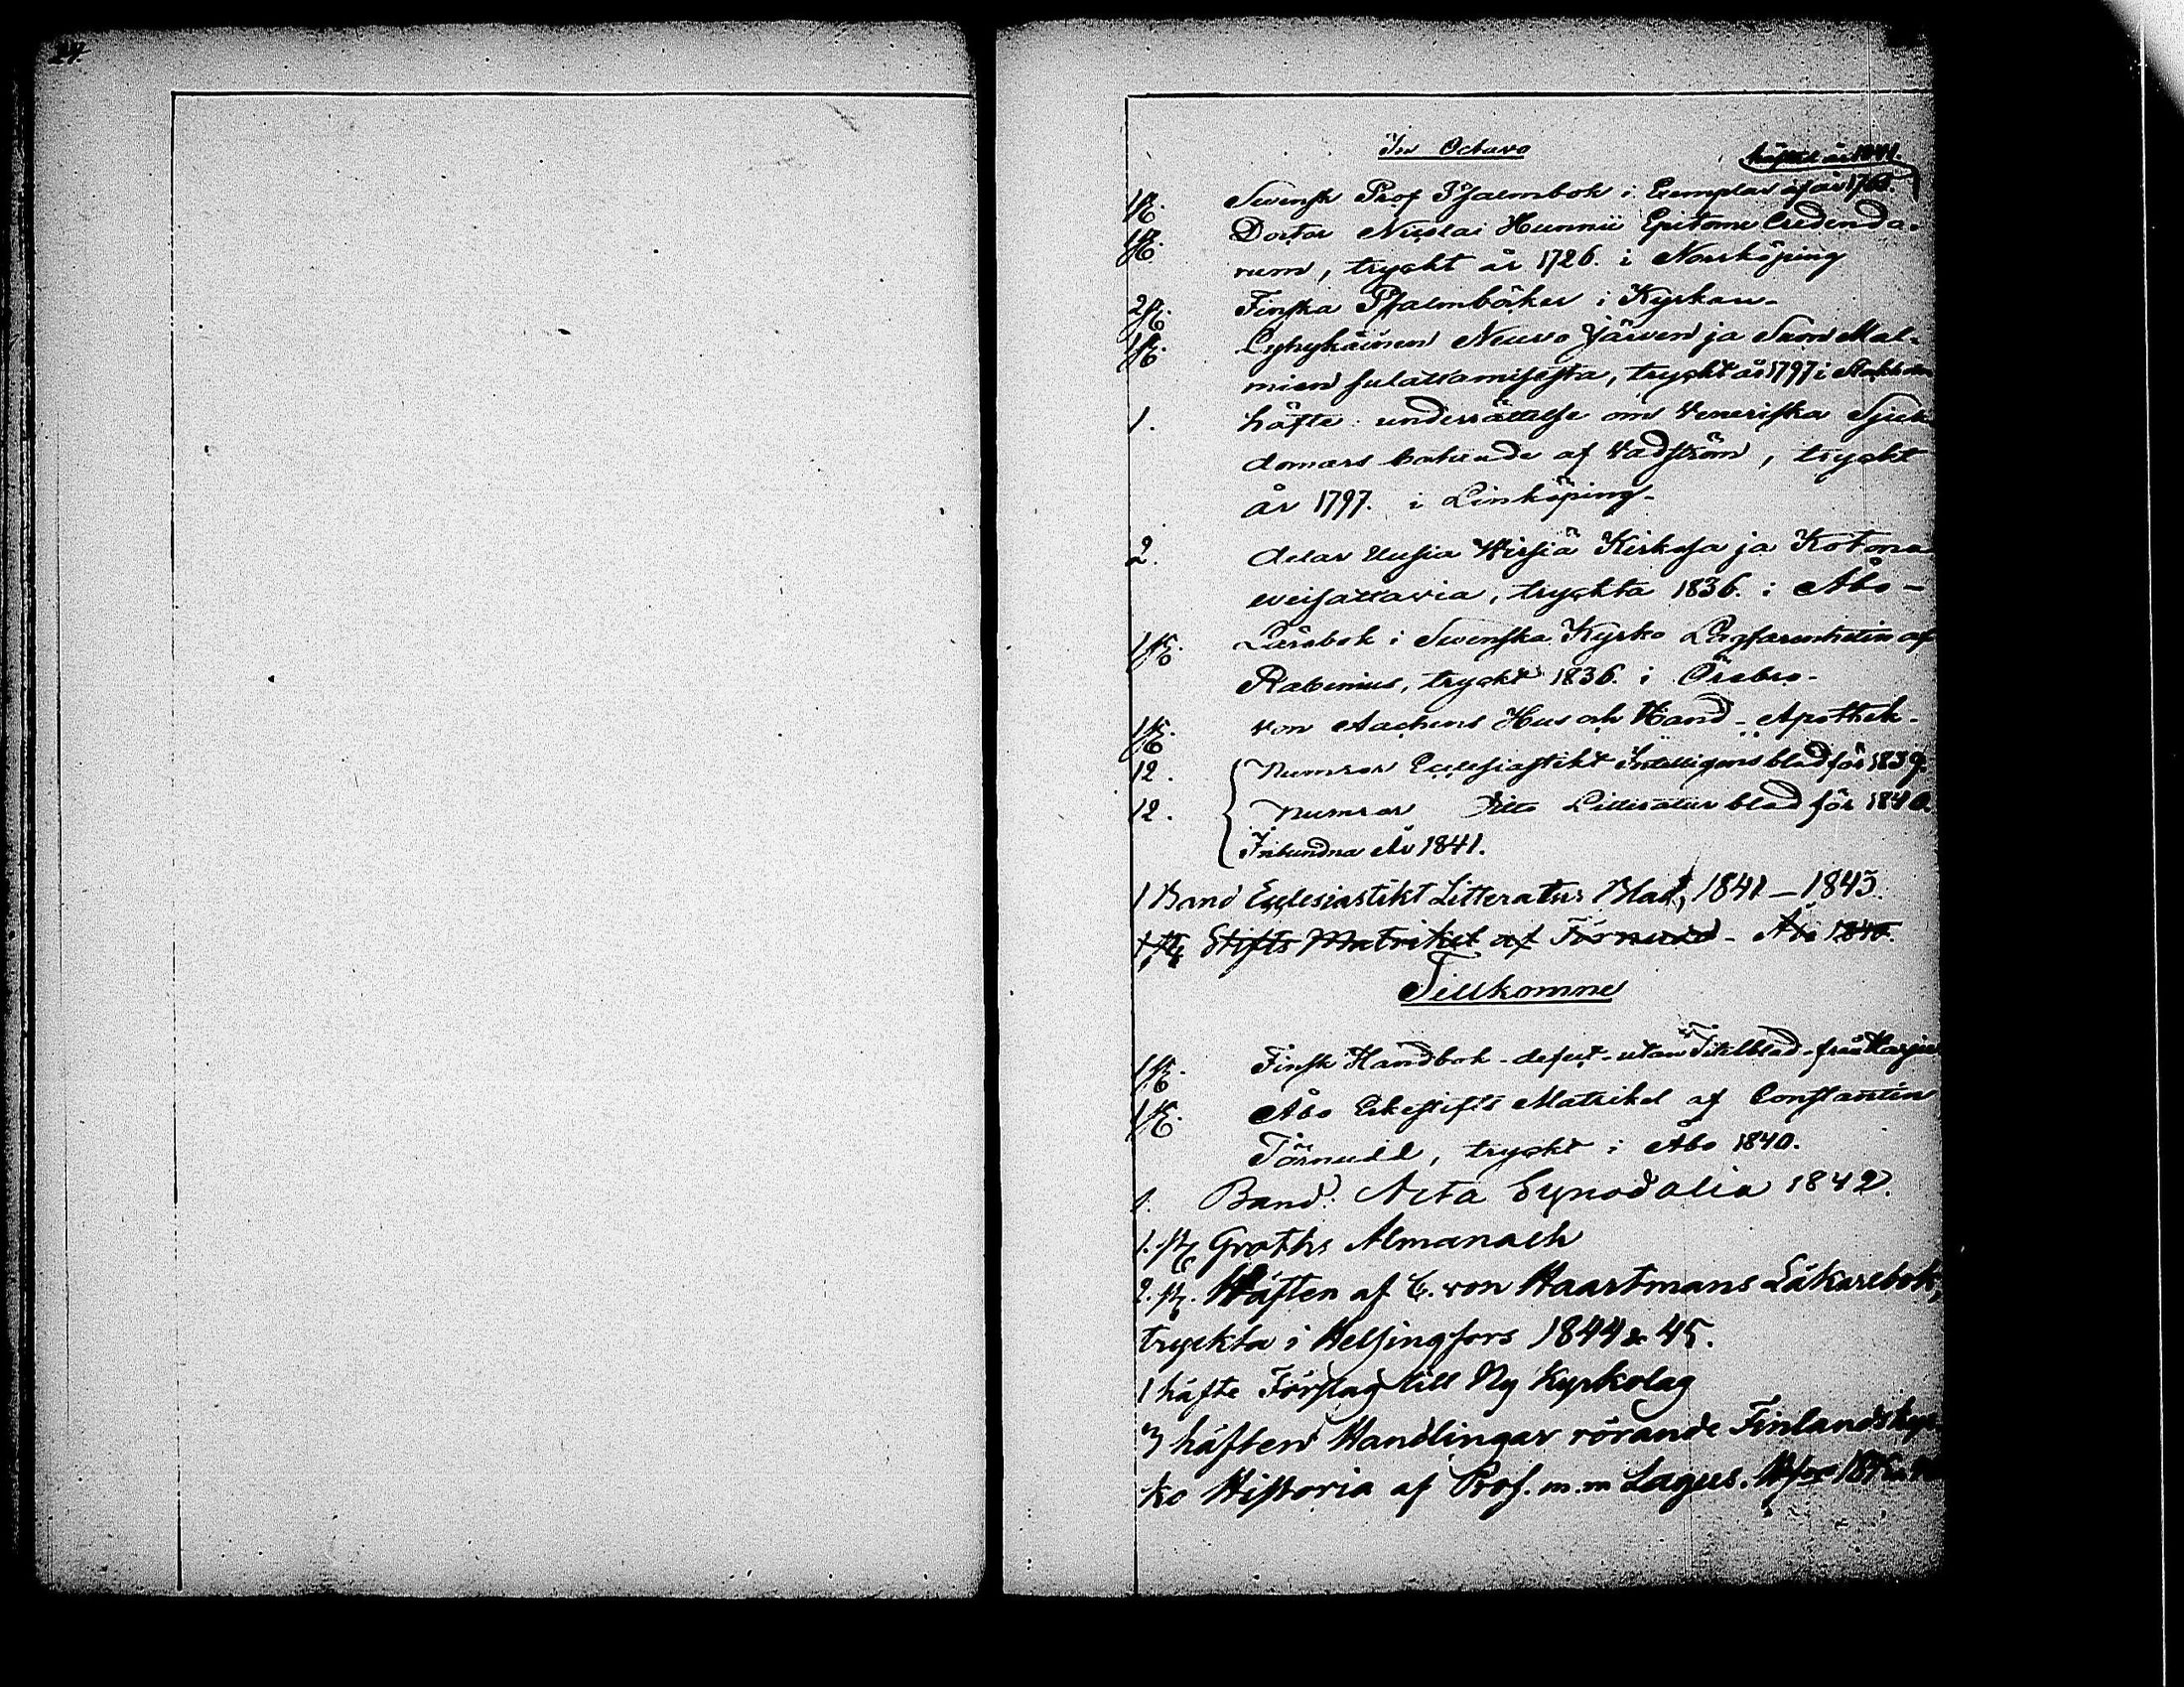 24.
In Octavo
häftet år 1841.
1 st. Swensk Prof Psalmbok i Exemplar af år 1765.
1 st. Doctor Nicolai Hunnii Epitome Credenda-
rum, tryckt år 1726. i Norrköping
2 st. Finska Psalmböcker i Kyrkan.
1 st. Lyhykäinen Neuwo Järwen ja Suon Mal-
mien sulattamisesta, tryckt år 1797 i
1. häfte underrättelse om Veneriska Sjuk
domars botande af Wadström, tryckt
år 1797. i Linköping.
2. delar Uusia Wirsiä Kirkosa ja Kotona
weisattavia, tryckta 1836. i Åbo -
1 st. Lärobok i Swenska Kyrko Lagfarenheten af
Rabenius, tryckt 1836. i Örebro.
1 st. von Aachens Hus och Hand-Apothek.
12. Numror Ecclesiastikt Intelligens blad för 1839.
12. Numror Ditto Litteratur blad för 1840.
Inbundna År 1841.
1 Band Ecclesiastikt Litteratur Blad, 1841 - 1843.
1 st Stifts Matrikel af Törnudd - Åbo 1840.
Tillkomne
1 st. Finsk Handbok - defect - utan Titelblad - från
1 st. Åbo Erkestifts Matrikel af Constantin
Törnudd, tryckt i Åbo 1840.
1. Band. Acta Synodalia 1842.
1. st Groths Almanach
2. st. Häften af C. von Haartmans Läkarebok,
tryckta i Helsingfors 1844 & 45.
1 häfte Förslag till Ny Kyrkolag
3 häften Handlingar rörande Finlands kyr
ko Historia af Prof. m.m Lagus.